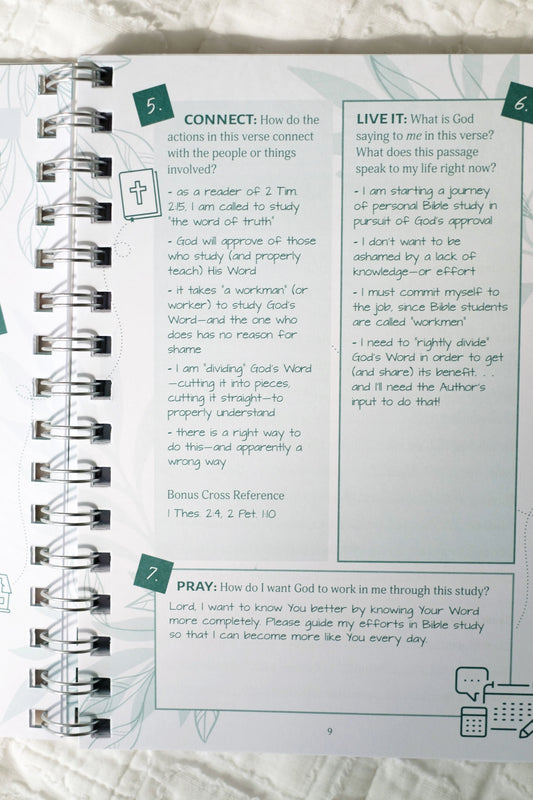 5.
CONNECT: How do the
actions in this verse connect
with the people or things
involved?
- as a reader of 2 Tim.
2:15, I am called to study
"the word of truth"
- God will approve of those
who study (and properly
teach) His Word
- it takes "a workman" (or
worker) to study God's
Word—and the one who
does has no reason for
shame
- I am "dividing" God's Word
—cutting it into pieces,
cutting it straight—to
properly understand
- there is a right way to
do this—and apparently a
wrong way
Bonus Cross Reference
1 Thes. 2:4, 2 Pet. 1:10
6.
LIVE IT: What is God
saying to me in this verse?
What does this passage
speak to my life right now?
- I am starting a journey
of personal Bible study in
pursuit of God's approval
- I don't want to be
ashamed by a lack of
knowledge—or effort
- I must commit myself to
the job, since Bible students
are called "workmen"
- I need to "rightly divide"
God's Word in order to get
(and share) its benefit. . .
and I'll need the Author's
input to do that!
7.
PRAY: How do I want God to work in me through this study?
Lord, I want to know You better by knowing Your Word
more completely. Please guide my efforts in Bible study
so that I can become more like You every day.
9